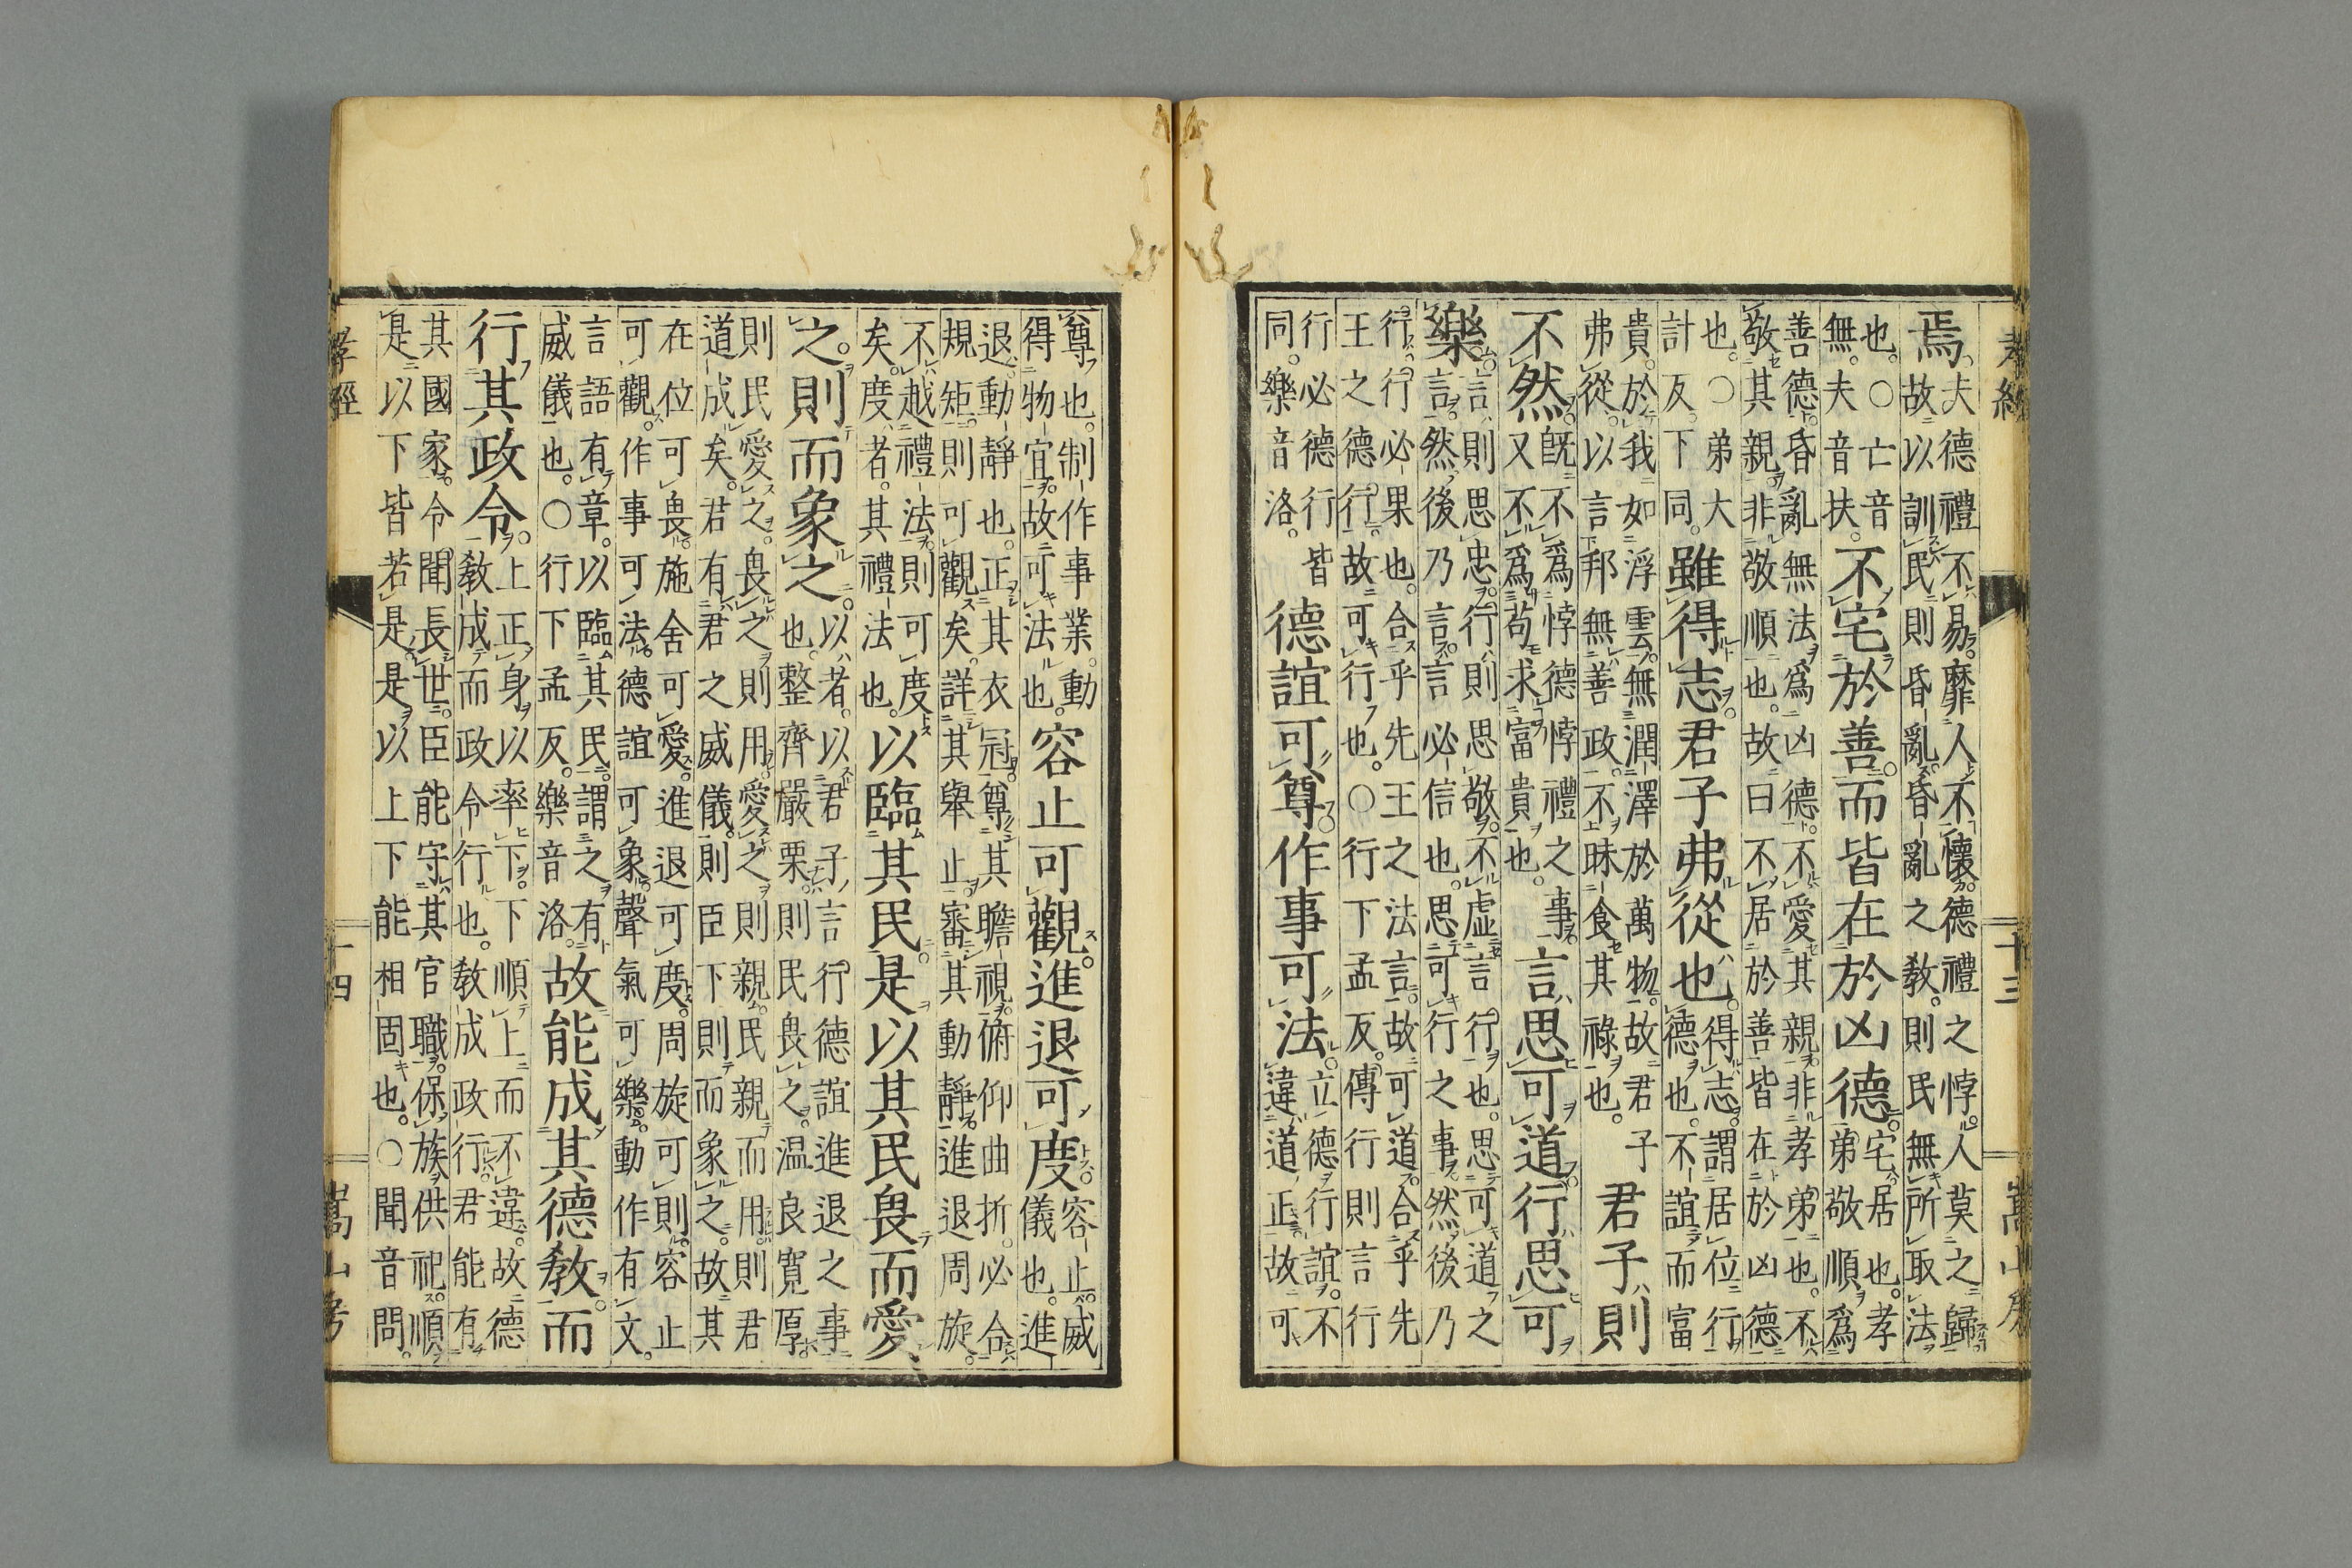 孝經 十三 嵩山房
焉。夫德禮不易。靡人不懷。德禮之悖。人莫之歸
故以訓民則昏亂。昏亂之敎。則民無所取法
也。○亡音
無。夫音扶。不宅於善。而皆在於凶德。宅居也。孝
弟敬順爲
善德。昏亂無法爲凶德。不愛其親。非孝弟也。不
敬其親。非敬順也。故曰不居於善。皆在於凶德
也。○弟大
計反。下同。雖得志。君子弗從也。得志。謂居位行
德也。不誼而富
貴。於我如浮雲。無潤澤於萬物。故君子
弗從。以言邦無善政。不昧食其祿也。君子則
不然。既不爲悖德悖禮之事。
又不爲苟求富貴也。言思可道。行思可
樂。言則思忠。行則思敬。不虛言行也。思可道之
言。然後乃言。言必信也。思可行之事。然後乃
行。行必果也。合乎先王之法言。故可道。合乎先
王之德行。故可行也。○行下孟反。傳行則言行
行必德行皆
同。樂音洛。德誼可尊。作事可法。立德行誼。不
違道正。故可
尊也。制作事業。動
得物宜。故可法也。容止可觀。進退可度。容止。威
儀也。進
退。動靜也。正其衣冠。尊其瞻視。俯仰曲折。必合
規矩。則可觀矣。詳其舉止。審其動靜。進退周旋。
不越禮法。則可度
矣。度者。其禮法也。以臨其民。是以其民畏而愛
之。則而象之。以者。以君子言行德誼進退之事
也。整齊嚴栗。則民畏之。温良寬厚。
則民愛之。畏之則用。愛之則親。民親而用。則君
道成矣。君有君之威儀。則臣下則而象之。故其
在位可畏。施舍可愛。進退可度。周旋可則。容止
可觀。作事可法。德誼可象。聲氣可樂。動作有文。
言語有章。以臨其民。謂之有
威儀也。○行下孟反。樂音洛。故能成其德敎。而
行其政令。上正身。以率下。下順上而不違。故德
敎成而政令行也。敎成政行。君能有
其國家。令聞長世。臣能守其官職。保族供祀。順
是以下皆若是。是以上下能相固也。○聞音問。
孝經 十四